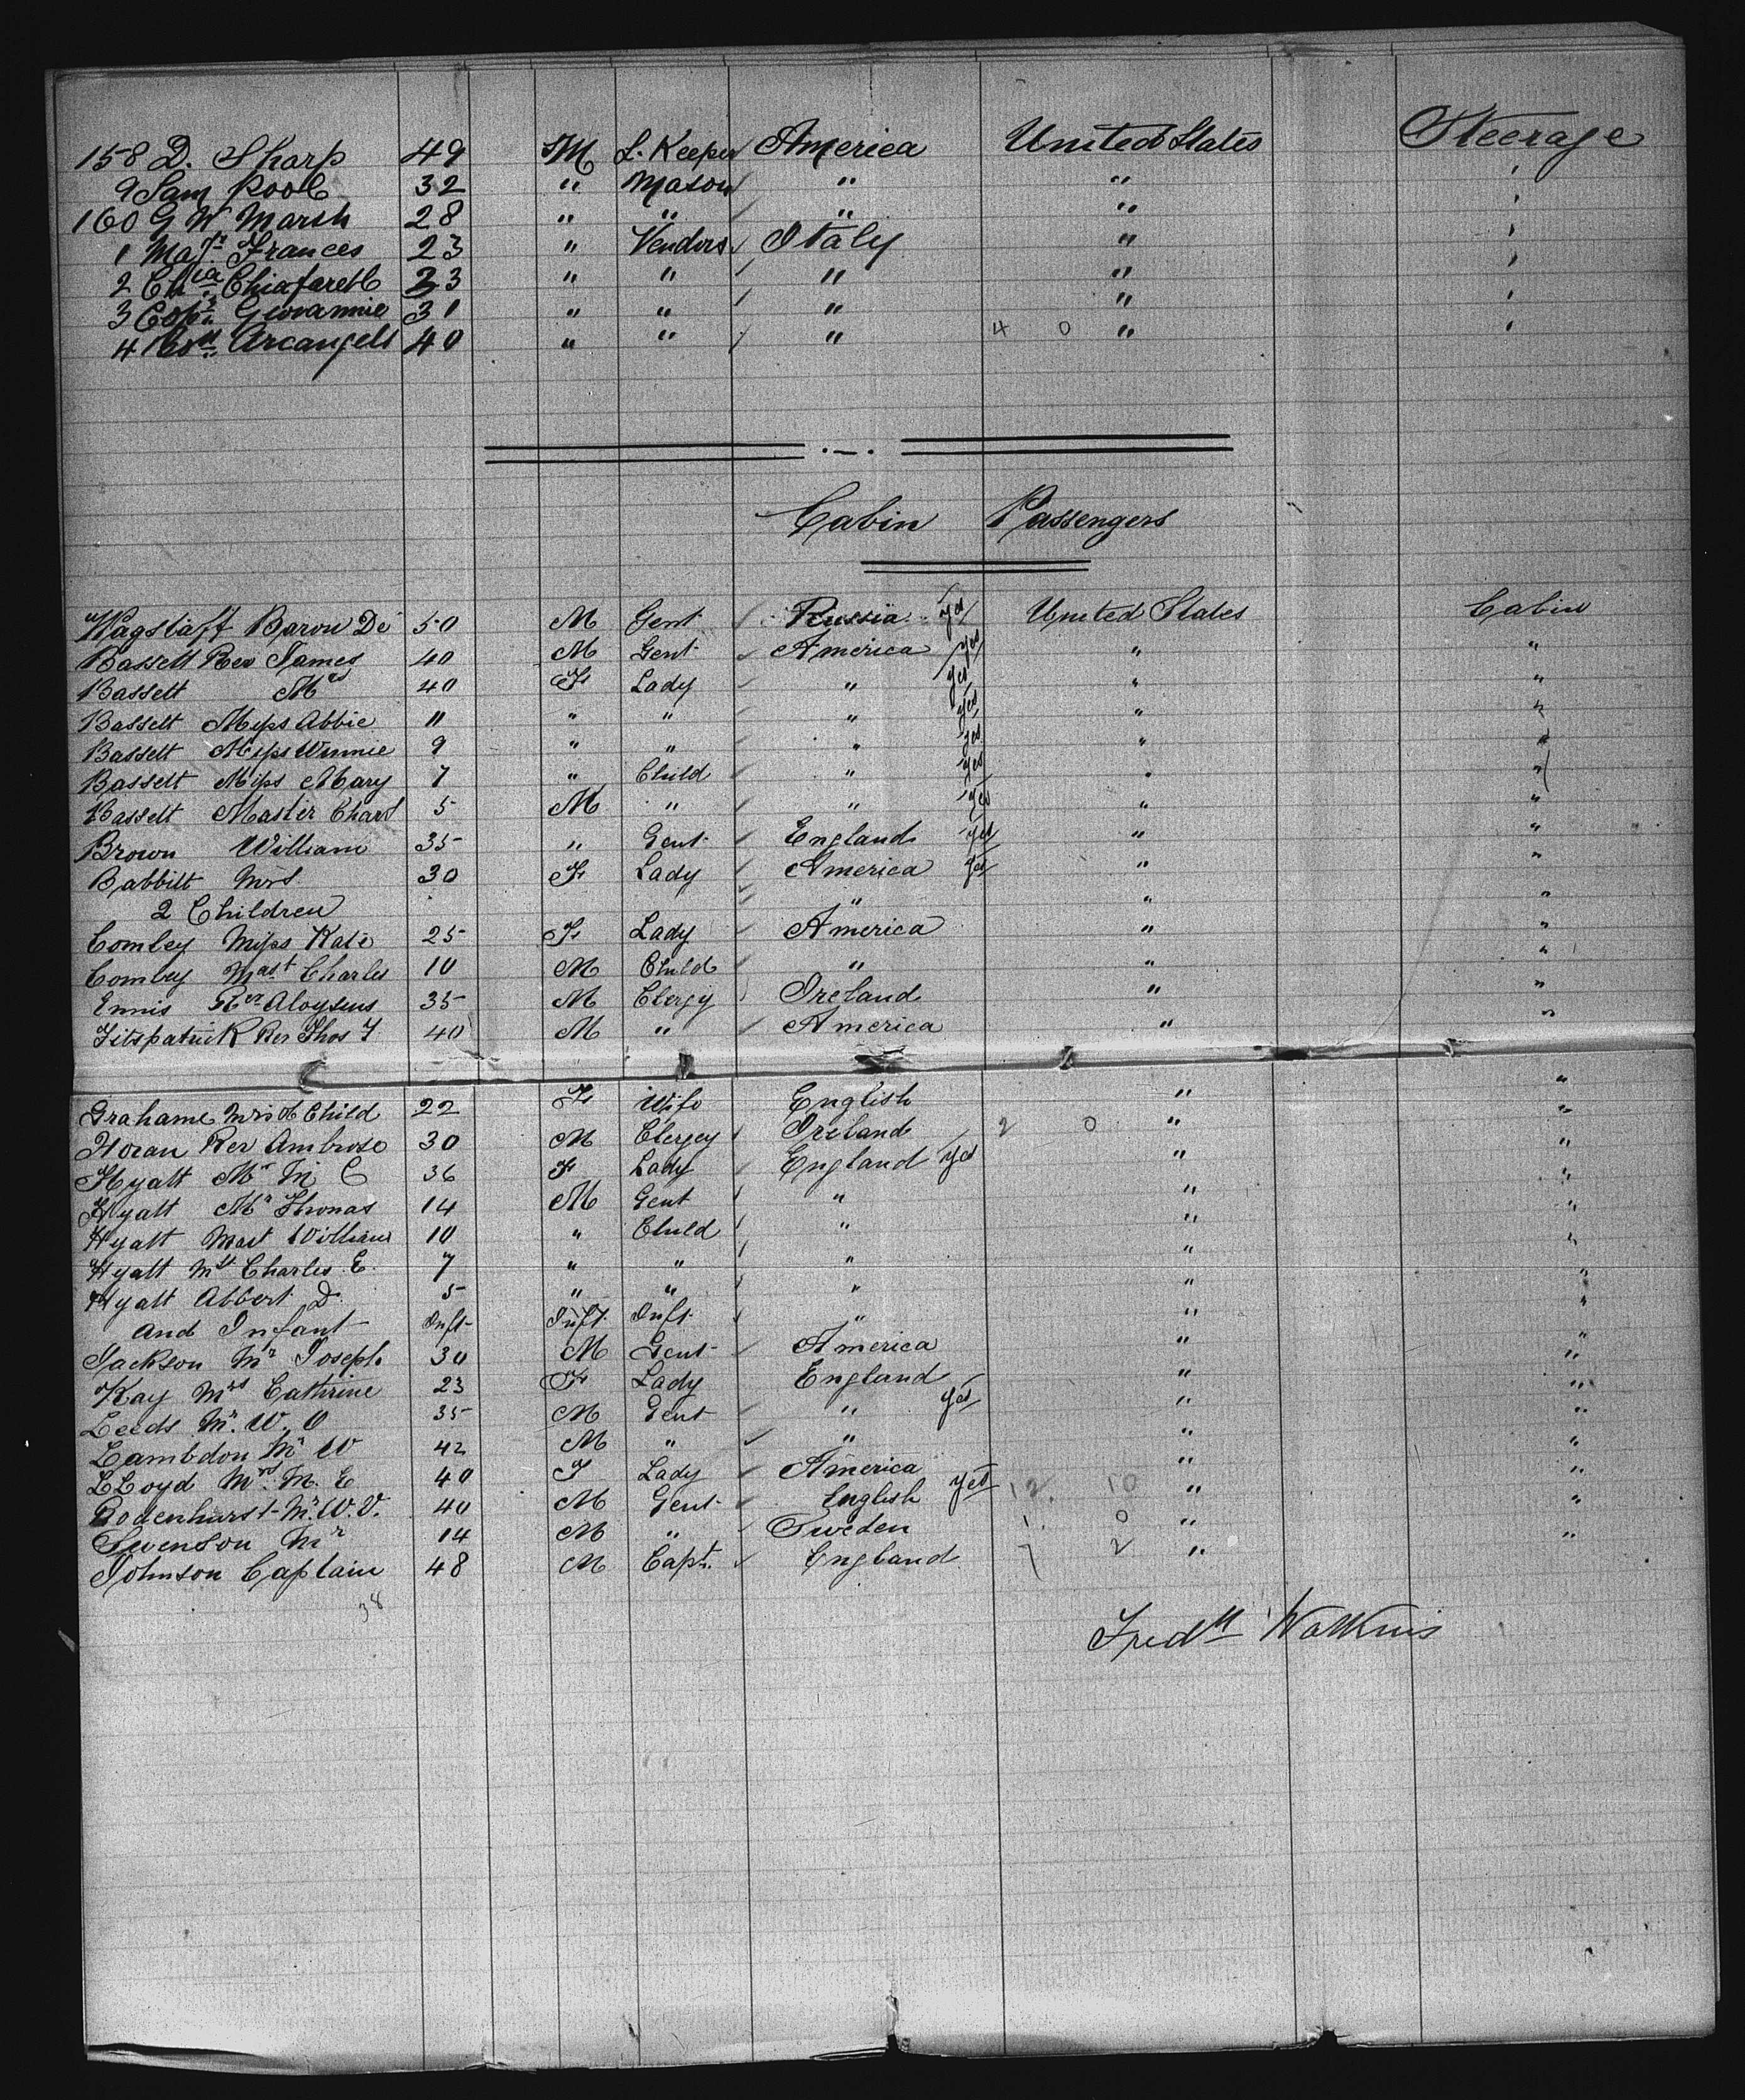 158 D. Sharp 49 M L. Keeper America United States Steerage
9 Sam Pool 32 " Mason " " '
160 G W Marsh 28 " " " " '
1 Frances 23 " Vendors Italy " '
2 33 " " " " '
3 Giovannie 31 " " " " '
4 Arcangelo 40 " " " 4 0 " '
Cabin Passengers
Wagstaff Baron De 50 M Gent Russia yes United States Cabin
Bassett Rev James 40 M Gent America yes " "
Bassett Mrs 40 F Lady " yes " "
Bassett Miss Abbie 11 " " " yes " "
Bassett Miss Winnie 9 " " " yes " "
Bassett Miss Mary 7 " Child " yes " "
Bassett Master Charl 5 M " " yes " "
Brown William 35 " Gent England yes " "
Babbitt Mrs 30 F Lady America yes " "
2 Children " " "
Comley Miss Kate 25 F Lady America " "
Comley Mast Charles 10 M Child " " "
Ennis Rev Aloysius 35 M Clergy Ireland " "
Fitspatrick Rev Thos F 40 M " America " "
Grahame Mrs & Child 22 F Wife English " "
Horan Rev Ambrose 30 M Clergey Ireland 2 0 " "
Hyatt C 36 F Lady England yes " "
Hyatt Mr Thomas 14 M Gent " " "
Hyatt Mast William 10 " Child " " "
Hyatt Mst Charles E. 7 " " " " "
Hyatt Albert D. 5 " " " " "
And Infant Inft Inft. Inft. " " "
Jackson Mr Joseph 30 M Gent America " "
Kay Mrs Cathrine 23 F Lady England " "
Leeds Mr. W. O 35 M Gent " yes " "
Lambdon Mr W 42 M " " " "
LLoyd Mrs. M. E 40 F Lady America " "
Bodenhurst Mr. W. V. 40 M Gent English yes 12 10 " "
Swenson Mr 14 M " Sweden 1 0 " "
Johnson Captain 48 M Capt. England 7 2 " "
38
Fredk Watkins